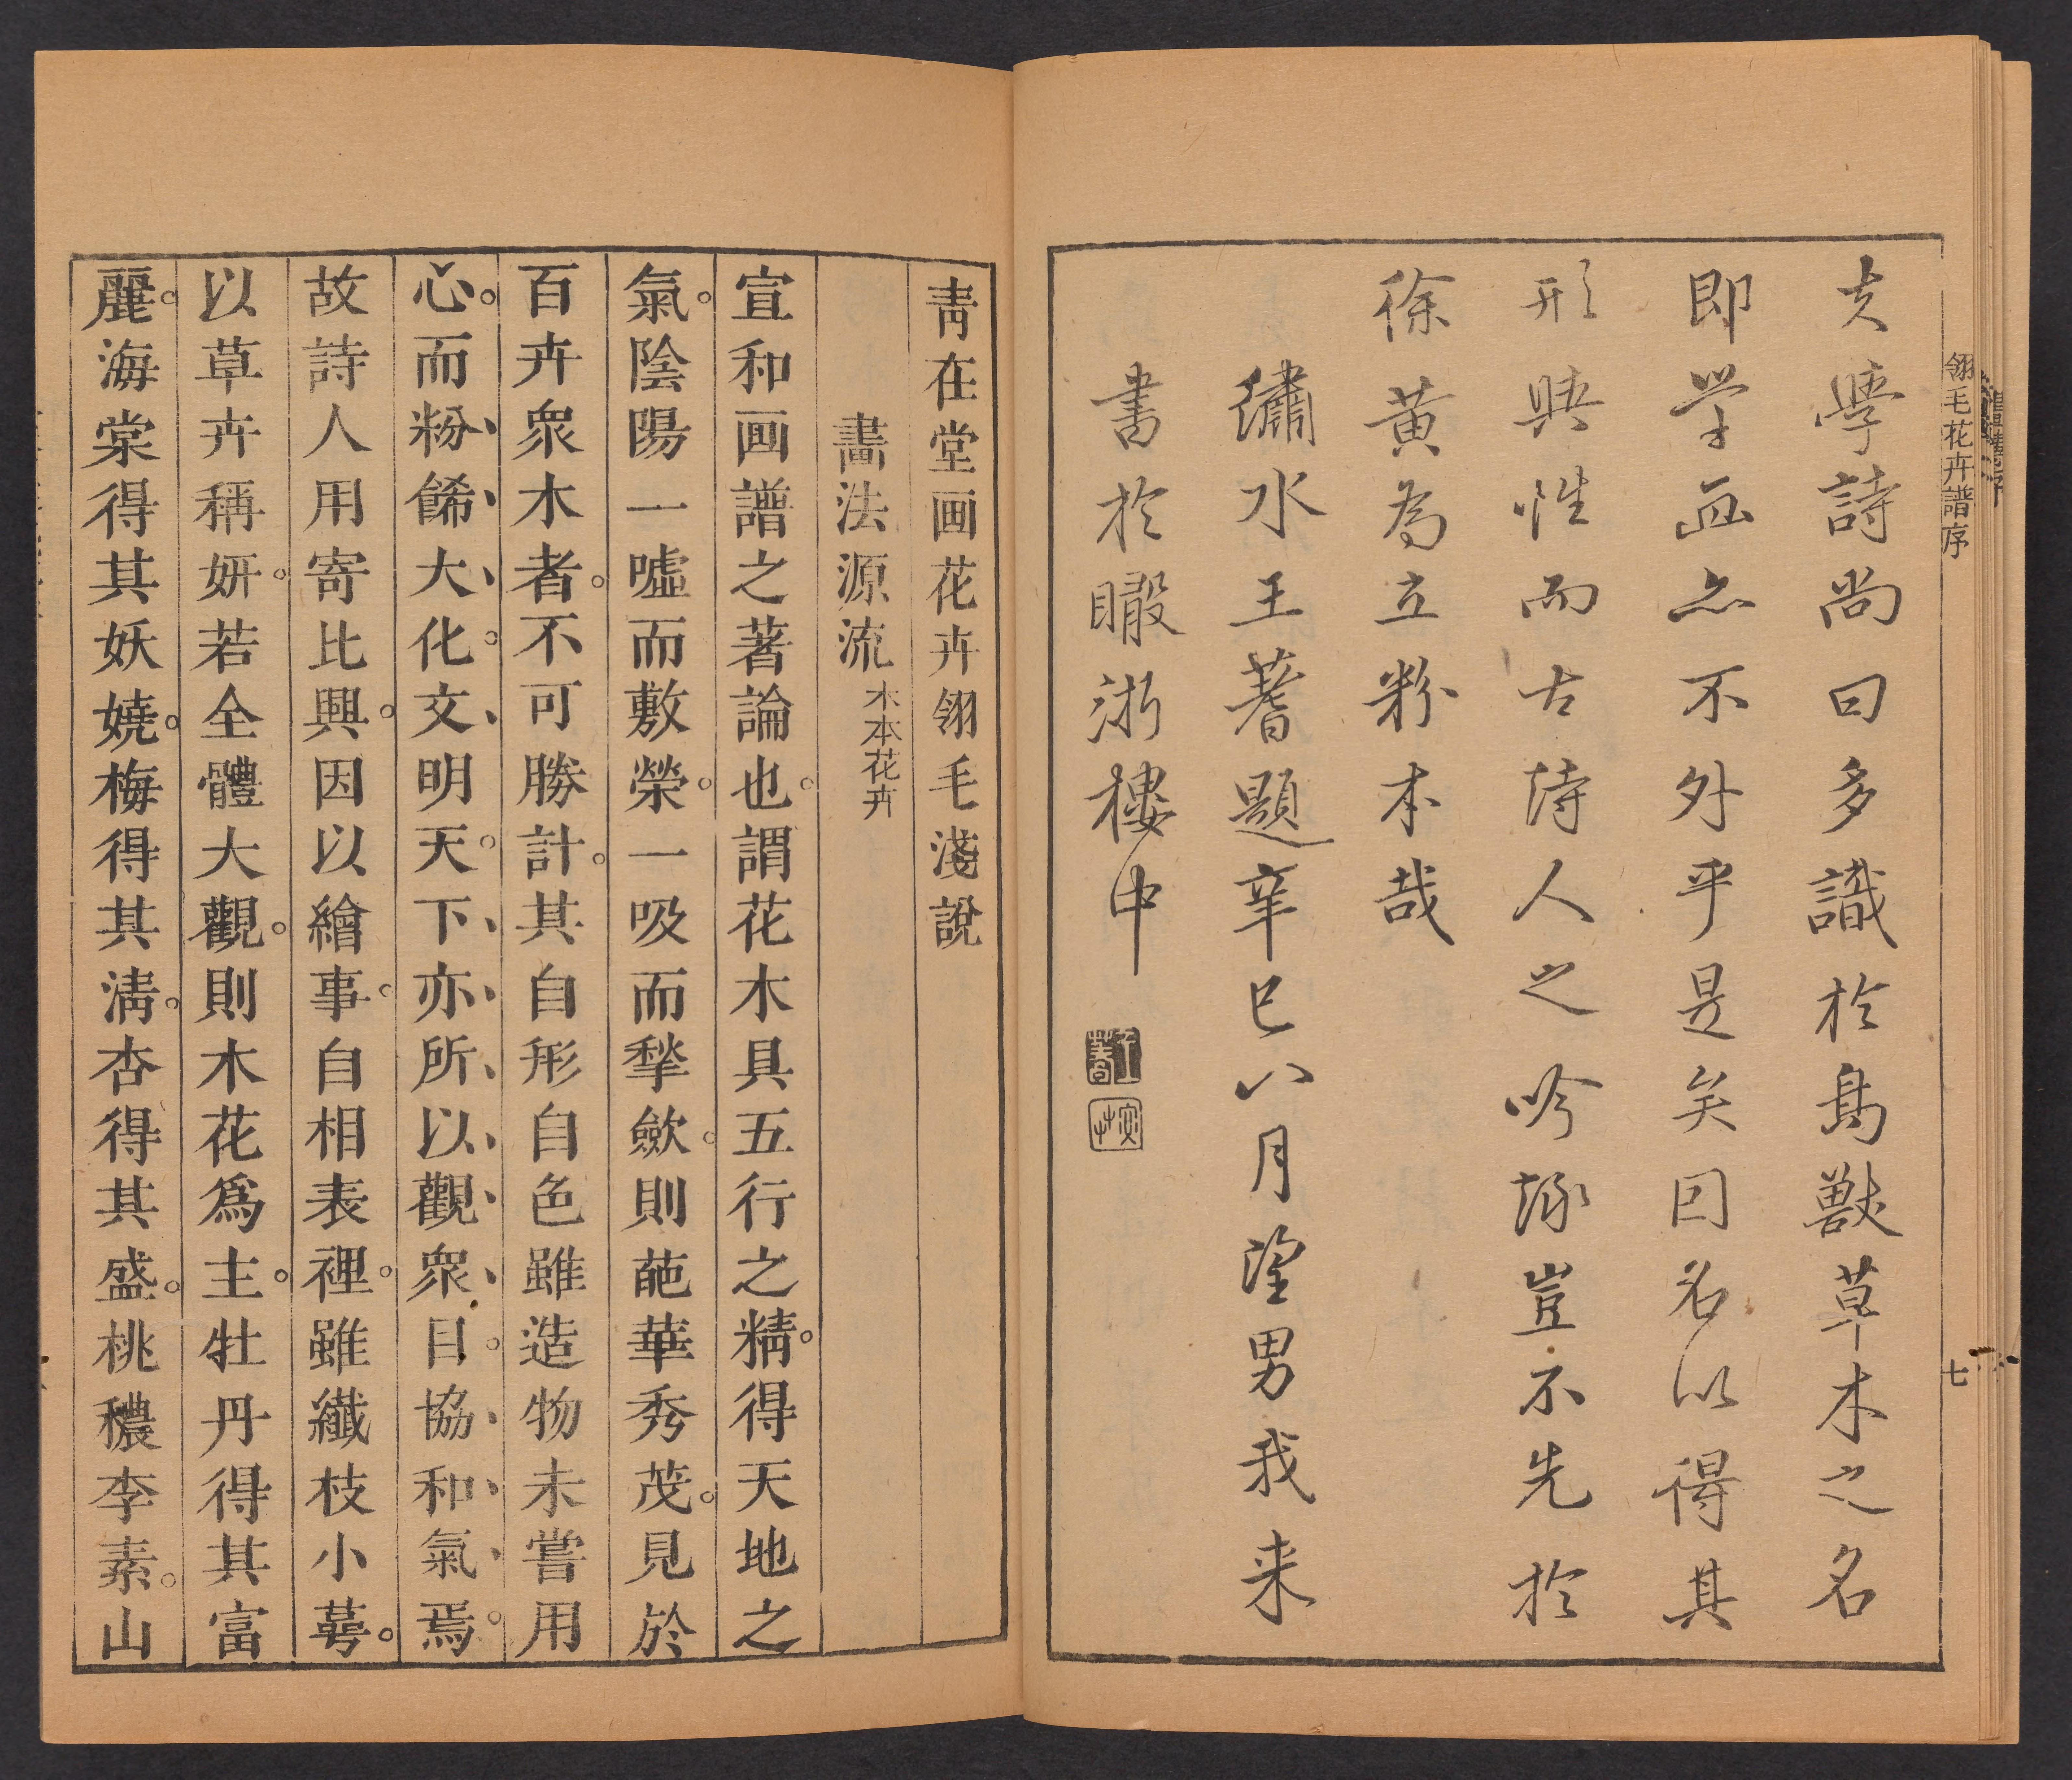 夫學詩尚曰多識於鳥獸草木之名
即学画亦不外乎是矣因名以得其
形與性而古詩人之吟琢豈不先於
徐黄為立粉本哉
繡水王蓍題辛巳八月望男我来
書於瞰浙樓中
翎毛花卉譜序
七
靑在堂画花卉翎毛淺說
畵法源流 木本花卉
宣和画譜之著論也謂花木具五行之精得天地之
氣陰陽一噓而敷榮一吸而揫歛則葩華秀茂見於
百卉衆木者不可勝計其自形自色雖造物未嘗用
心而粉餙大化文明天下亦所以觀衆目協和氣焉
故詩人用寄比興因以繪事自相表裡雖纖枝小萼
以草卉稱姸若全體大觀則木花爲主牡丹得其富
麗海棠得其妖嬈梅得其淸杏得其盛桃穠李素山